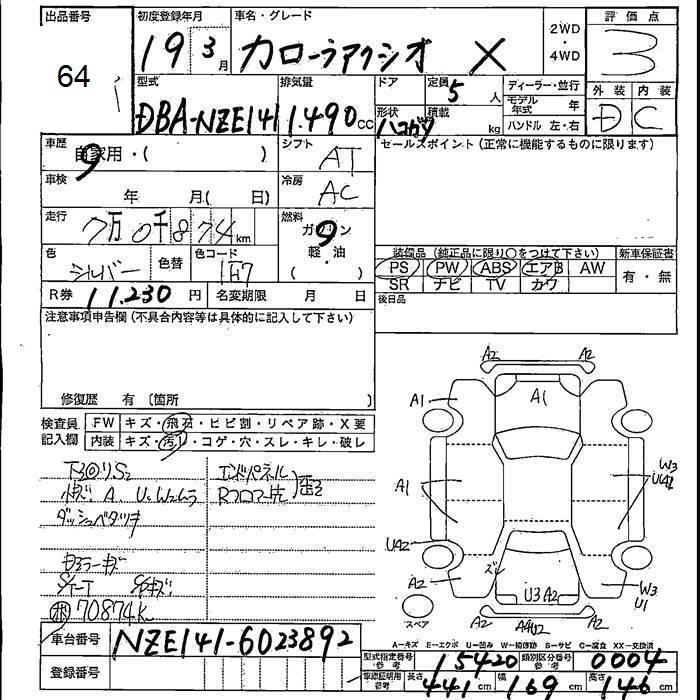 出品番号 初度登録年月 車名・グレード 評価点
64 19 3月 カローラアクシオ X 2WD・4WD 3
型式 排気量 ドア 定員 5人 ディーラー・並行 外装 内装
DBA-NZE141 1.490cc 形状 ハコガタ 積載 kg モデル年式 年 D C
ハンドル 左・右
車歴 自家用・( ) シフト AT セールスポイント(正常に機能するものに限ります)
車検 年 月( 日) 冷房 AC
走行 7万0千874km 燃料 ガソリン
色 シルバー 色替 色コード 1F7 軽・油 ( )
装備品(純正品に限り○をつけて下さい) 新車保証書
PS PW ABS エアB AW 有・無
SR ナビ TV カワ
R券 11.230円 名変期限 月 日 後日品
注意事項申告欄(不具合内容等は具体的に記入して下さい)
修復歴 有(箇所 )
検査員記入欄 FW キズ・飛石・ヒビ割・リペア跡・X要
内装 キズ・汚レ・コゲ・穴・スレ・キレ・破レ
エンドパネル
ダッシュベタツキ
70874K
A2 A2
A1 A1
A1 W3
UA2
A2 ズレ U3 A2 W3
U1
スペア A4U2
A-キズ E-エクボ U-凹み W-補修跡 S-サビ C-腐食 XX-交換済
車台番号 NZE141-6023892
型式指定番号 参考 15420 類別区分番号 参考 0004
登録番号
車庫証明用 参考 長さ 441cm 幅 169cm 高さ 146cm